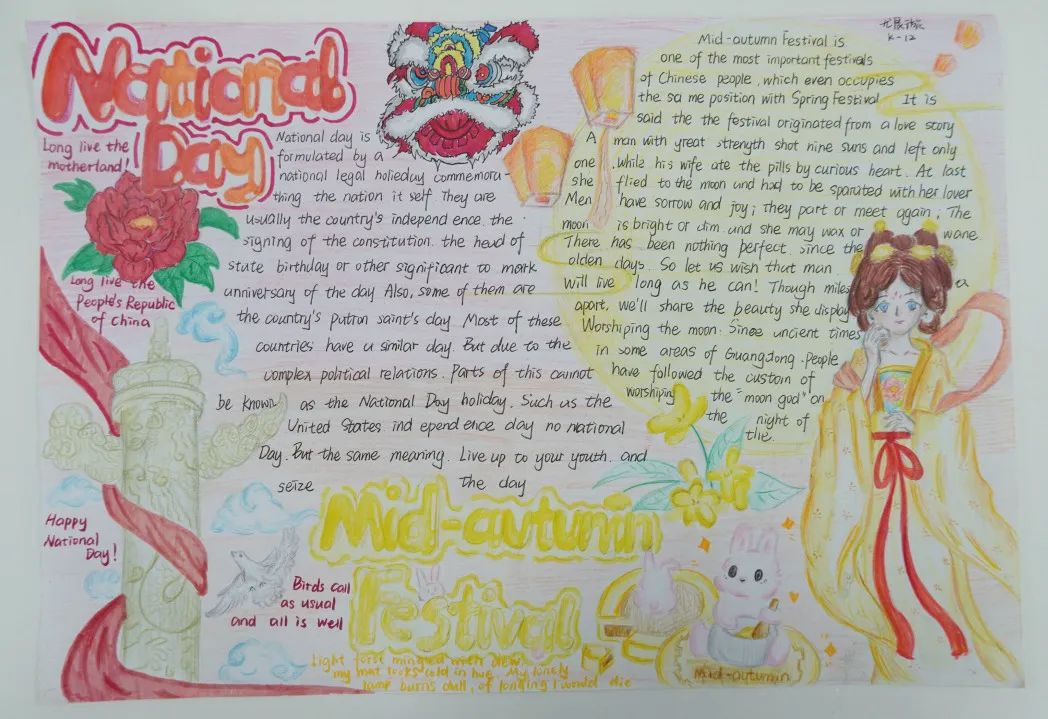 National
Day
Long live the
motherland!
National day is
formulated by a
national legal holieday commemora-
thing the nation it self They are
usually the country's independ ence. the
signing of the constitution. the head of
state birthday or other significant to mark
anniversary of the day Also, some of them are
the country's putron saint's day Most of these
countries have a similar day. But due to the
complex political relations. Parts of this cannot
be known as the National Day holiday. Such as the
United States ind epend ence day no National
Day. But the same meaning. Live up to your youth. and
seize the day
Long live the
People's Republic
of China
Happy
National
Day!
Birds call
as usual
and all is well
K-12
Mid-autumn Festival is
one of the most important festivals
of Chinese people, which even occupies
the sa me position with Spring Festival. It is
said the the festival originated from a love story
A man with great strength shot nine suns and left only
one .While his wife ate the pills by curious heart. At last
she flied to the moon and had to be sparated with her lover
Men have sorrow and joy; They part or meet again; The
moon is bright or dim. und she may wax or wane.
There has been nothing perfect. since the
olden days. So let us wish that man
will live long as he can! Though miles a
apart, we'll share the beauty she display
Worshiping the moon. Since uncient times
in some areas of Guangdong .People
have followed the custom of
worshiping the "moon god" on
the night of
the.
Mid-autumn
Festival
Light forst mingled with dew
my mat looks cold in hue. My lonely
lamp burns dull, of longing I would die
Mid-autumn